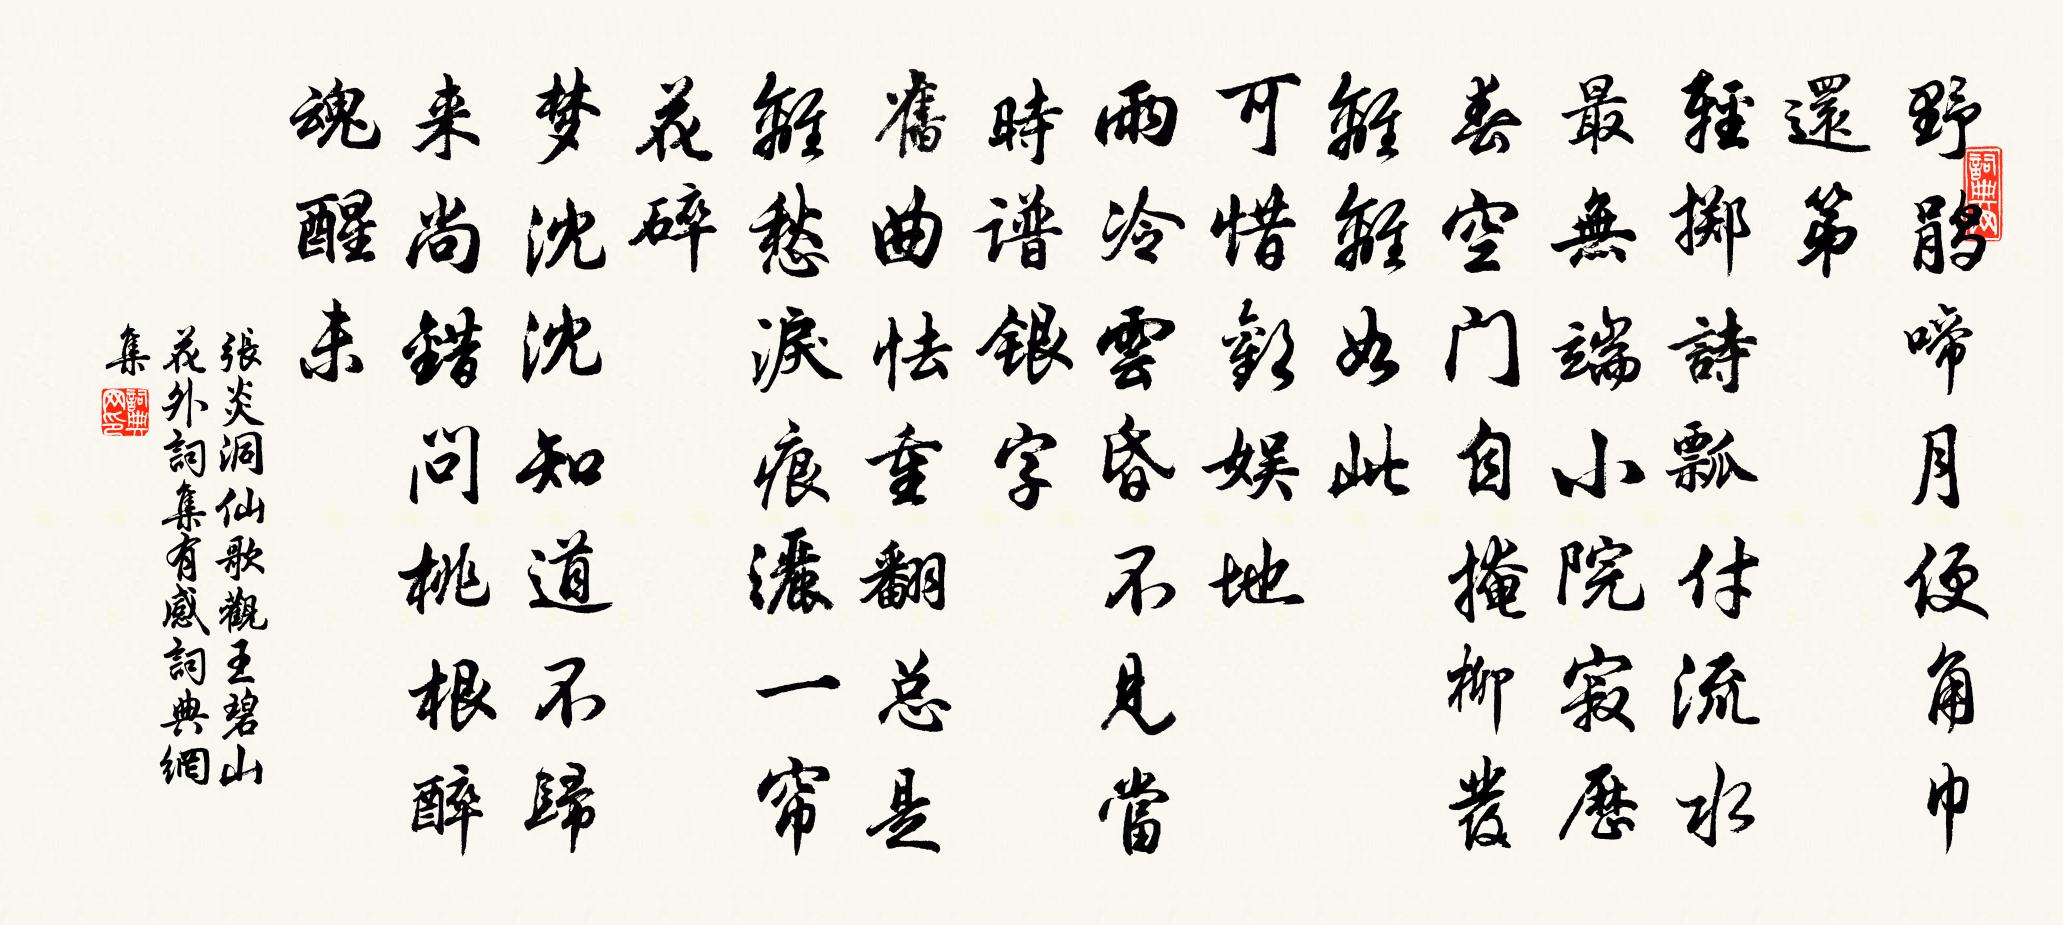 野鹃啼月便角巾
還第
輕擲詩瓢付流水
最無端小院寂歷
春空门自掩柳發
離離如此
可惜歡娛地
雨冷雲昏不見當
時谱银字
舊曲怯重翻总是
離愁淚痕灑一帘
花碎
梦沈沈知道不歸
来尚錯问桃根醉
魂醒未
張炎洞仙歌觀王碧山
花外詞集有感詞典網
集
詞典网
詞典网印